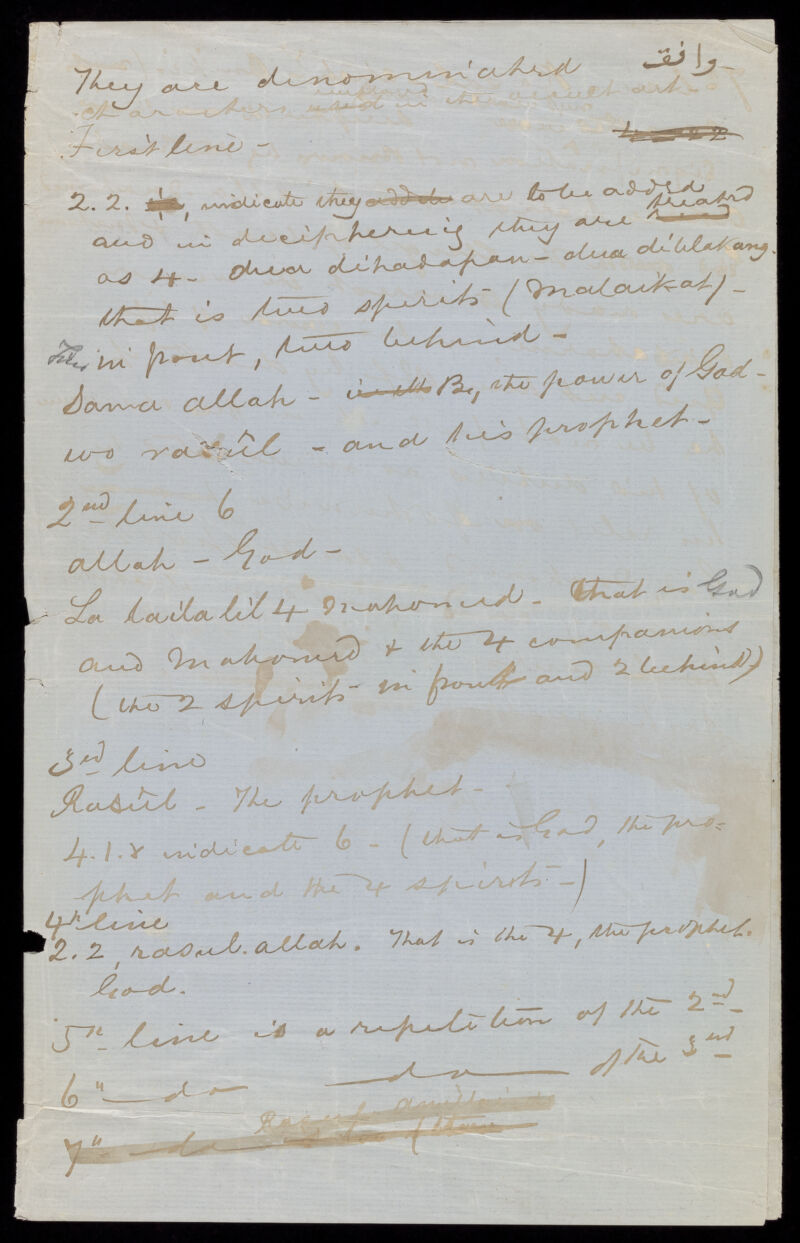 They are denominated وافق
First line -
2. 2. indicate they added are to be added
and in deciphering they are treated
as 4 - dua dihadapan - dua diblakang.
that is two spirits (Malaikat) -
in front, two behind -
Sama allah - Be, the power of God -
wo rasûl - and his prophet -
2nd line 6
allah - God -
La lailalil 4 Mahomed - that is God
and Mahomed & the 4 companions
(the 2 spirits in front and 2 behind)
3rd line
Rasûl - The prophet -
4.1.8 indicate 6 - (that is God, the pro=
phet and the 4 spirits -)
4th line
2. 2, rasul. allah. That is the 4, the prophet.
God.
5th line is a repetition of the 2nd
6" - do - do - of the 3rd
7" - do